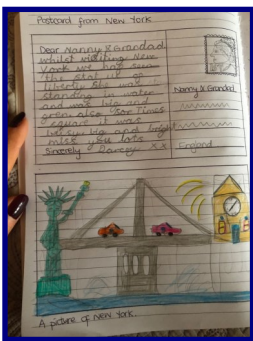 Postcard from New York
Dear Nanny & Grandad
whilst visiting New
York we has seen
the stat ue of
liberty she was
standing in water
and was big and
green also Too Times
square it was
busy big and bright
miss you lots
Sincerely Darcey xx
Nanny & Grandad
England
A picture of New York.